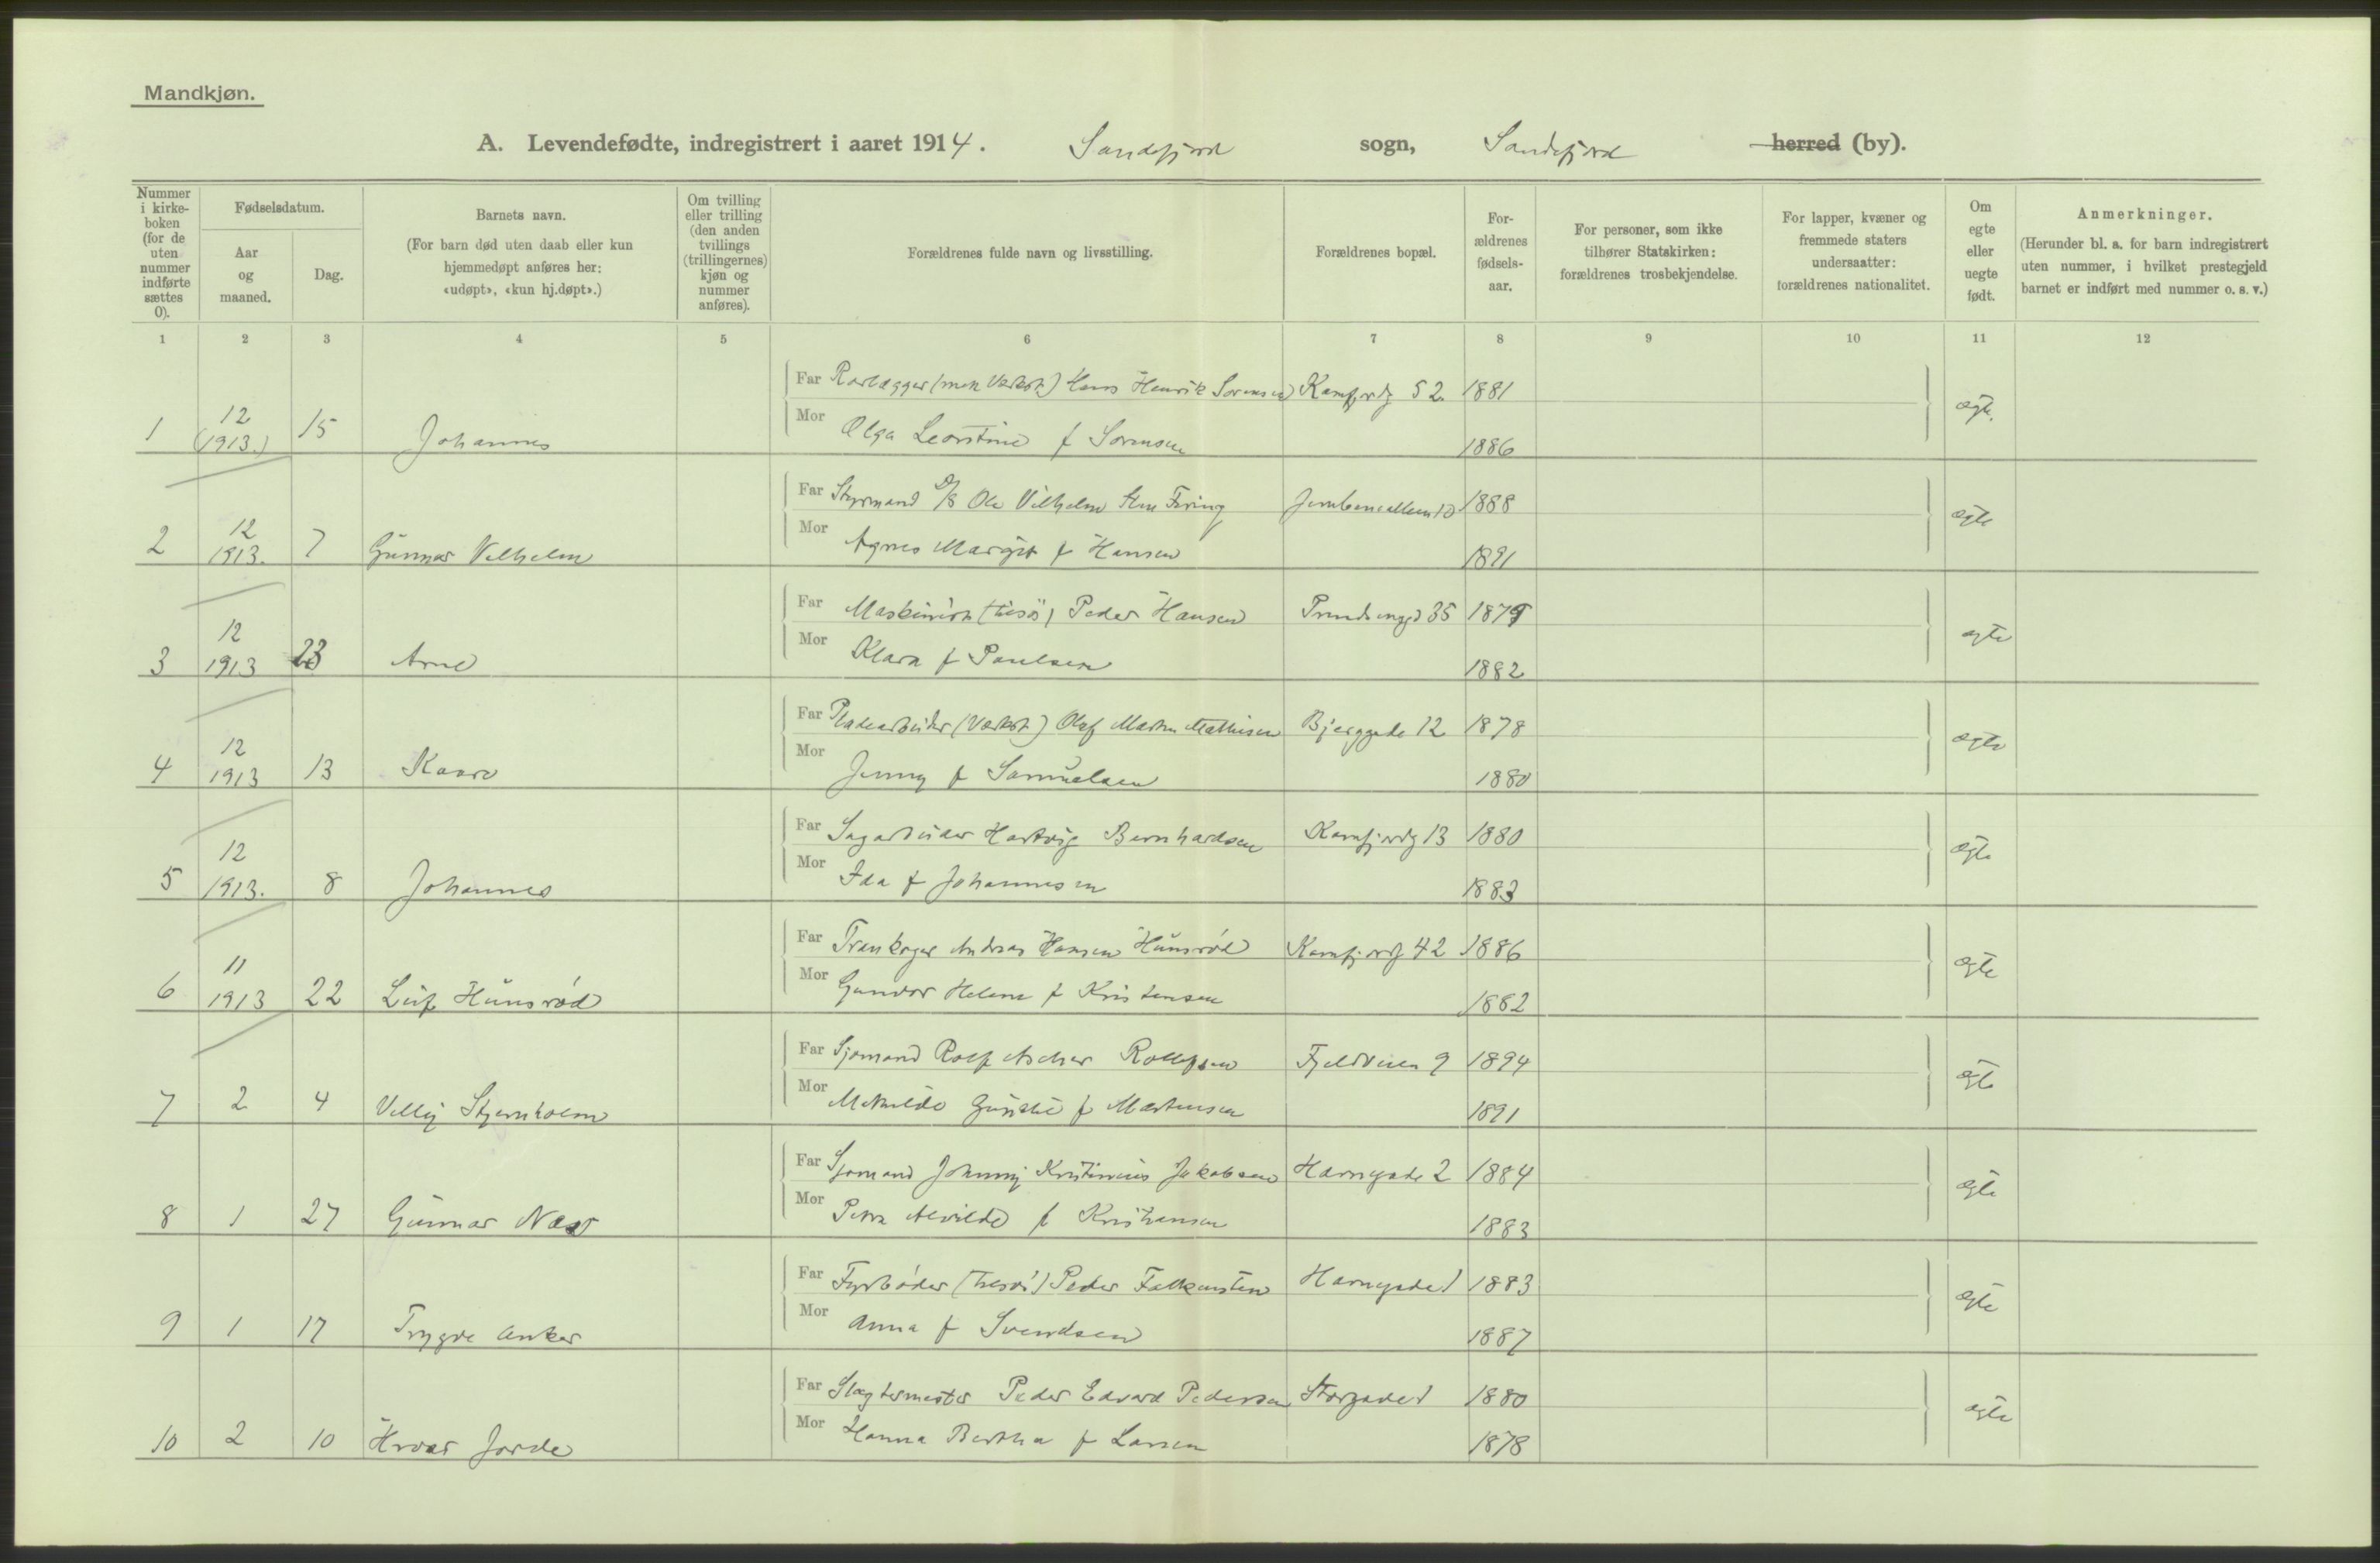 Mandkjøn.
A. Levendefødte, indregistrert i aaret 1914. Sandefjord sogn, Sandefjord herred (by).
Nummer i kirke-boken (for de uten nummer indførte sættes 0).
Fødselsdatum.
Aar og maaned.
Dag.
Barnets navn.
(For barn død uten daab eller kun hjemmedøpt anføres her: «udøpt», «kun hj.døpt».)
Om tvilling eller trilling (den anden tvillings (trillingernes) kjøn og nummer anføres).
Forældrenes fulde navn og livsstilling.
Forældrenes bopæl.
For-ældrenes fødsels-aar.
For personer, som ikke tilhører Statskirken: forældrenes trosbekjendelse.
For lapper, kvæner og fremmede staters undersaatter: forældrenes nationalitet.
Om egte eller uegte født.
Anmerkninger.
(Herunder bl. a. for barn indregistrert uten nummer, i hvilket prestegjeld barnet er indført med nummer o. s. v.)
1 2 3 4 5 6 7 8 9 10 11 12
Far Rørlægger (mek Værkst) Hans Henrik Sørensen Kamfjordg 52 1881
1 12 (1913.) 15 Johannes Mor Olga Leontine f Sørensen 1886 ægte
Far Styrmand D/S Ole Vilhelm Firing Jernbanealleen 10 1888
2 12 1913. 7 Gunnar Vilhelm Mor Agnes Margit f Hansen 1891 ægte
Far Maskinist (tilsøs) Peder Hansen 35 1879
3 12 1913 23 Arne Mor Klara f Paulsen 1882 ægte
Far Pladearbeider (Værkst) Olaf Martin Mathisen Bjerggade 12 1878
4 12 1913 13 Kaare Mor Jenny f Samuelsen 1880 ægte
Far Sagarbeider Hartvig Bernhardsen Kamfjordg 13 1880
5 12 1913. 8 Johannes Mor Ida f Johannesen 1883 ægte
Far Trankoger Andreas Hansen Hunsrød Kamfjordg 42 1886
6 11 1913 22 Leif Hunsrød Mor Gunvor Helene f Kristensen 1882 ægte
Far Sjømand Rolf Ascher Rollefsen Fjeldveien 9 1894
7 2 4 Villy Stjernholm Mor Mathilde f Martinsen 1891 ægte
Far Sjømand Johnny Kristinius Jakobsen Havnegade 2 1884
8 1 27 Gunnar Næss Mor Petra Alvilde f Kristiansen 1883 ægte
Far Fyrbøder (tilsøs) Peder Falkensten Havnegade 1 1883
9 1 17 Trygve Anker Mor Anna f Svendsen 1887 ægte
Far Slagtermester Peder Edvard Pedersen Storgade 1 1880
10 2 10 Hroar Jarle Mor Hanna Bertha f Larsen 1878 ægte